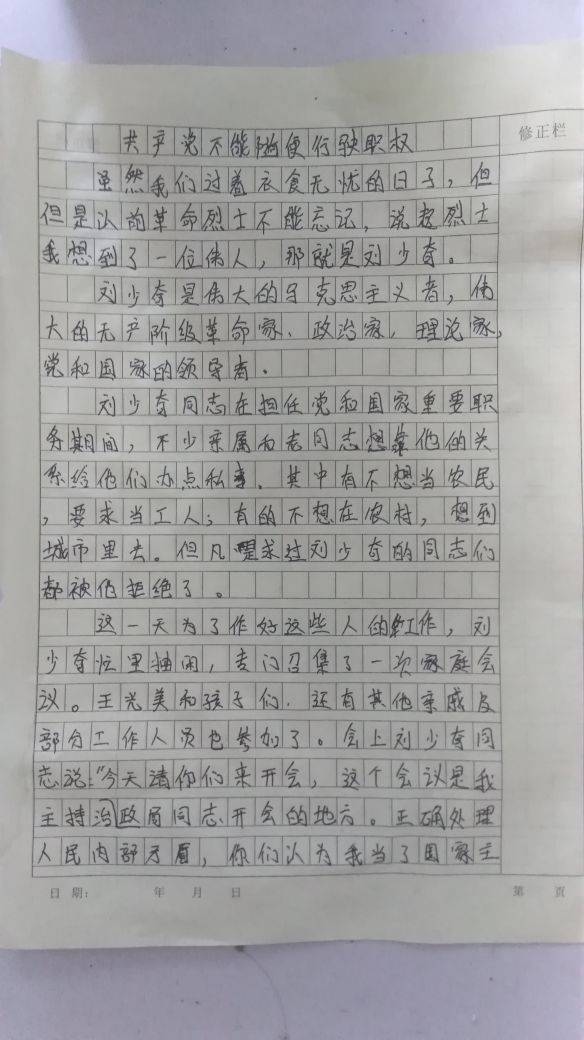 共产党不能随便行驶职权
修正栏
虽然我们过着衣食无忧的日子，但
但是以前革命烈士不能忘记，说起烈士
我想到了一位伟人，那就是刘少奇。
刘少奇是伟大的马克思主义者，伟
大的无产阶级革命家、政治家，理论家，
党和国家的领导者．
刘少奇同志在担任党和国家重要职
务期间，不少亲属和老同志想靠他的关
系给他们办点私事．其中有不想当农民
，要求当工人；有的不想在农村，想到
城市里去。但凡要求过刘少奇的同志们
都被他拒绝了。
这一天为了作好这些人的工作，刘
少奇忙里抽闲，专门召集了一次家庭会
议。王光美和孩子们．还有其他亲戚及
部分工作人员也参加了。会上刘少奇同
志说："今天请你们来开会，这个会议是我
主持治政局同志开会的地方。正确处理
人民内部矛盾，你们认为我当了国家主
日 期： 年 月 日
第 页